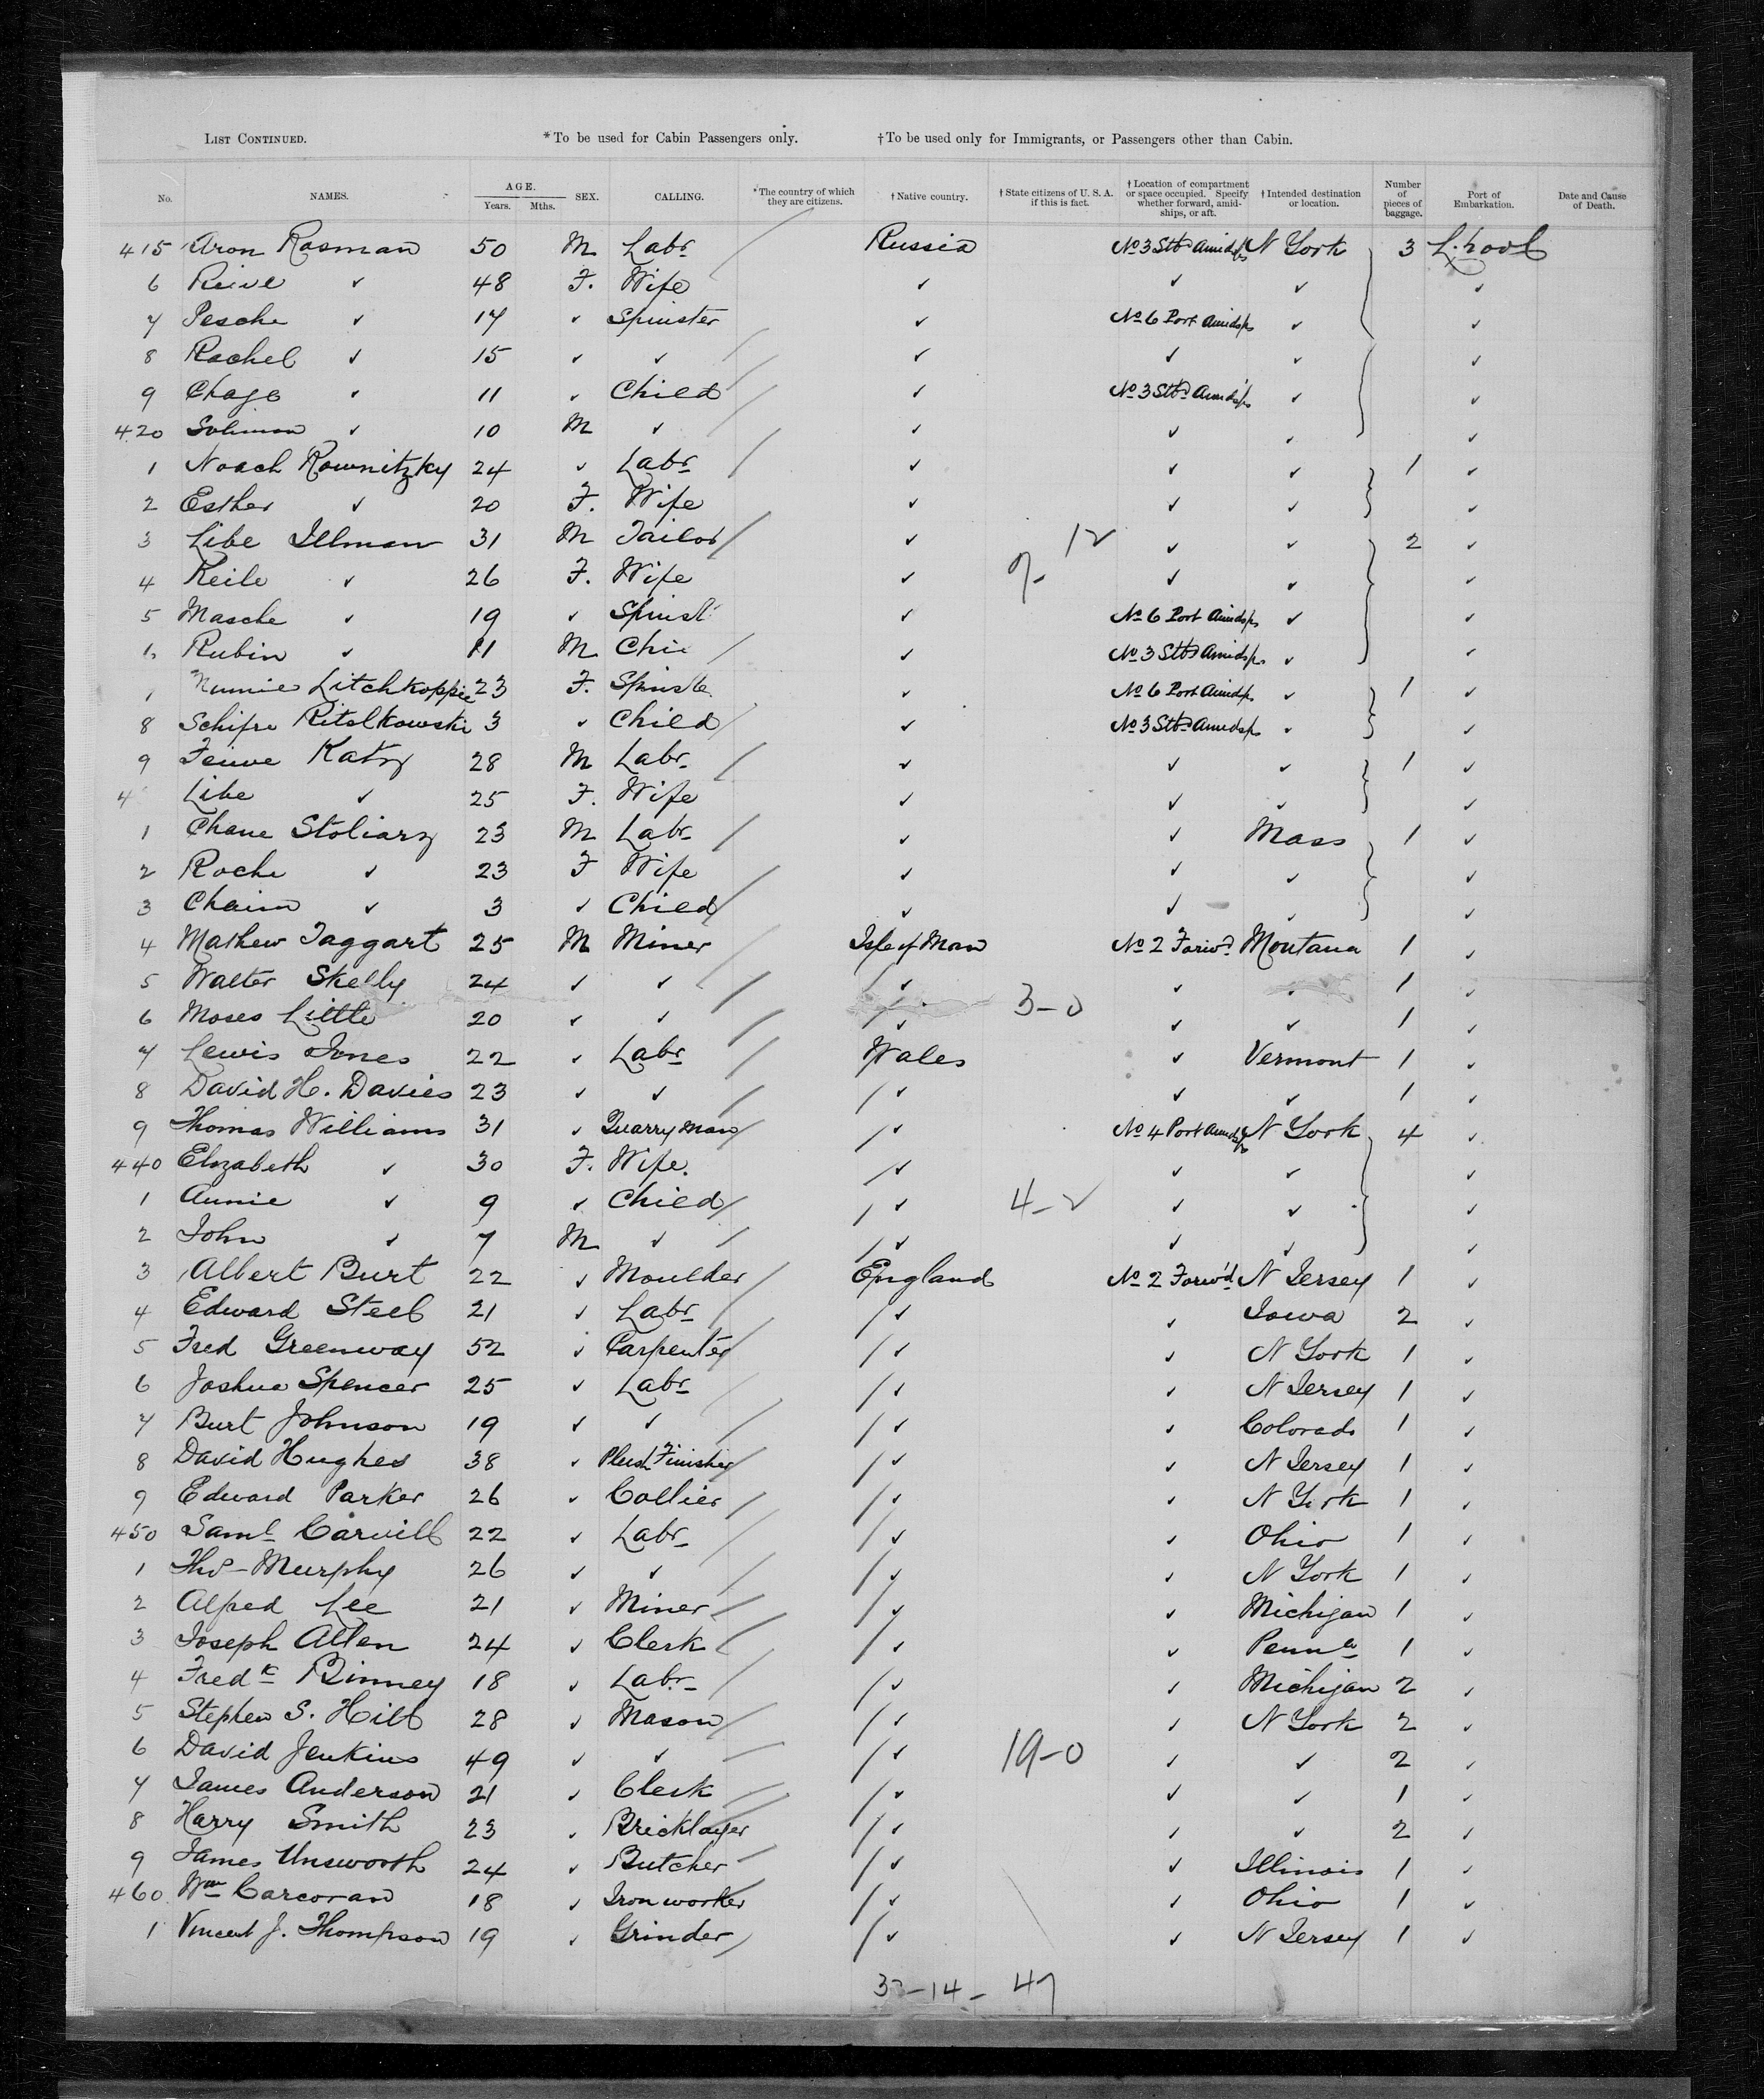 LIST CONTINUED. *To be used for Cabin Passengers only. †To be used only for Immigrants, or Passengers other than Cabin.
No. NAMES. AGE. Years. Mths. SEX. CALLING. *The country of which they are citizens. †Native country. †State citizens of U. S. A. if this is fact. †Location of compartment or space occupied. Specify whether forward, amidships, or aft. †Intended destination or location. Number of pieces of baggage. Port of Embarkation. Date and Cause of Death.
415 Aron Rosman 50 M Labr Russia No 3 Stbd Amidsps N York 3 L.pool
6 Reive ✓ 48 F. Wife ✓ ✓ ✓ ✓
7 Pesche ✓ 17 ✓ Spinster ✓ No 6 Port Amidsps ✓ ✓
8 Rachel ✓ 15 ✓ ✓ ✓ ✓ ✓ ✓
9 Chage ✓ 11 ✓ Child ✓ No 3 Stbd Amidsps ✓ ✓
420 Soliman ✓ 10 M ✓ ✓ ✓ ✓ ✓
1 Noach Rownitzky 24 ✓ Labr ✓ ✓ ✓ 1 ✓
2 Esther ✓ 20 F. Wife ✓ ✓ ✓ ✓
3 Libe Illman 31 M Tailor ✓ 12 ✓ ✓ 2 ✓
4 Reile ✓ 26 F. Wife ✓ 7- ✓ ✓ ✓
5 Masche ✓ 19 ✓ Spinst ✓ No 6 Port Amidsps ✓ ✓
Rubin ✓ 11 M Chi ✓ No 3 Stbd Amidsps ✓ ✓
Litchkoppie 23 F. Spinste ✓ No 6 Port Amidsps ✓ 1 ✓
8 Schifre Ritalkowski 3 ✓ Child ✓ No 3 Stbd Amidsps ✓ ✓
9 Feiwe Katz 28 M Labr ✓ ✓ ✓ 1 ✓
4 Libe ✓ 25 F. Wife ✓ ✓ ✓ ✓
1 Chane Stoliarz 23 M Labr ✓ ✓ Mass 1 ✓
2 Roche ✓ 23 F Wife ✓ ✓ ✓ ✓
3 Chaim ✓ 3 ✓ Child ✓ ✓ ✓ ✓
4 Mathew Taggart 25 M Miner Isle of Man No 2 Forwd Montana 1 ✓
5 Walter Skelly 24 ✓ ✓ ✓ ✓ ✓ 1 ✓
6 Moses Little 20 ✓ ✓ ✓ 3-0 ✓ ✓ 1 ✓
7 Lewis Jones 22 ✓ Labr Wales ✓ Vermont 1 ✓
8 David H. Davies 23 ✓ ✓ ✓ ✓ ✓ 1 ✓
9 Thomas Williams 31 ✓ Quarry Man ✓ No 4 Port Amidsps N York 4 ✓
440 Elizabeth ✓ 30 F. Wife. ✓ ✓ ✓ ✓
1 Annie ✓ 9 ✓ Child ✓ 4-2 ✓ ✓ ✓
2 John ✓ 7 M ✓ ✓ ✓ ✓ ✓
3 Albert Burt 22 ✓ Moulder England No 2 Forw'd N Jersey 1 ✓
4 Edward Steel 21 ✓ Labr ✓ ✓ Iowa 2 ✓
5 Fred Greenway 52 ✓ Carpenter ✓ ✓ N York 1 ✓
6 Joshua Spencer 25 ✓ Labr ✓ ✓ N Jersey 1 ✓
7 Burt Johnson 19 ✓ ✓ ✓ ✓ Colorado 1 ✓
8 David Hughes 38 ✓ Plush Finisher ✓ ✓ N Jersey 1 ✓
9 Edward Parker 26 ✓ Collier ✓ ✓ N York 1 ✓
450 Saml Carvill 22 ✓ Labr ✓ ✓ Ohio 1 ✓
1 Thos Murphy 26 ✓ ✓ ✓ ✓ N York 1 ✓
2 Alfred Lee 21 ✓ Miner ✓ ✓ Michigan 1 ✓
3 Joseph Allen 24 ✓ Clerk ✓ ✓ Penna 1 ✓
4 Fredk Binney 18 ✓ Labr ✓ ✓ Michigan 2 ✓
5 Stephen S. Hill 28 ✓ Mason ✓ ✓ N York 2 ✓
6 David Jenkins 49 ✓ ✓ ✓ 19-0 ✓ ✓ 2 ✓
7 James Anderson 21 ✓ Clerk ✓ ✓ ✓ 1 ✓
8 Harry Smith 23 ✓ Bricklayer ✓ ✓ ✓ 2 ✓
9 James Unsworth 24 ✓ Butcher ✓ ✓ Illinois 1 ✓
460 Wm Corcoran 18 ✓ Iron worker ✓ ✓ Ohio 1 ✓
1 Vincent J. Thompson 19 ✓ Grinder ✓ ✓ N Jersey 1 ✓
33-14-47